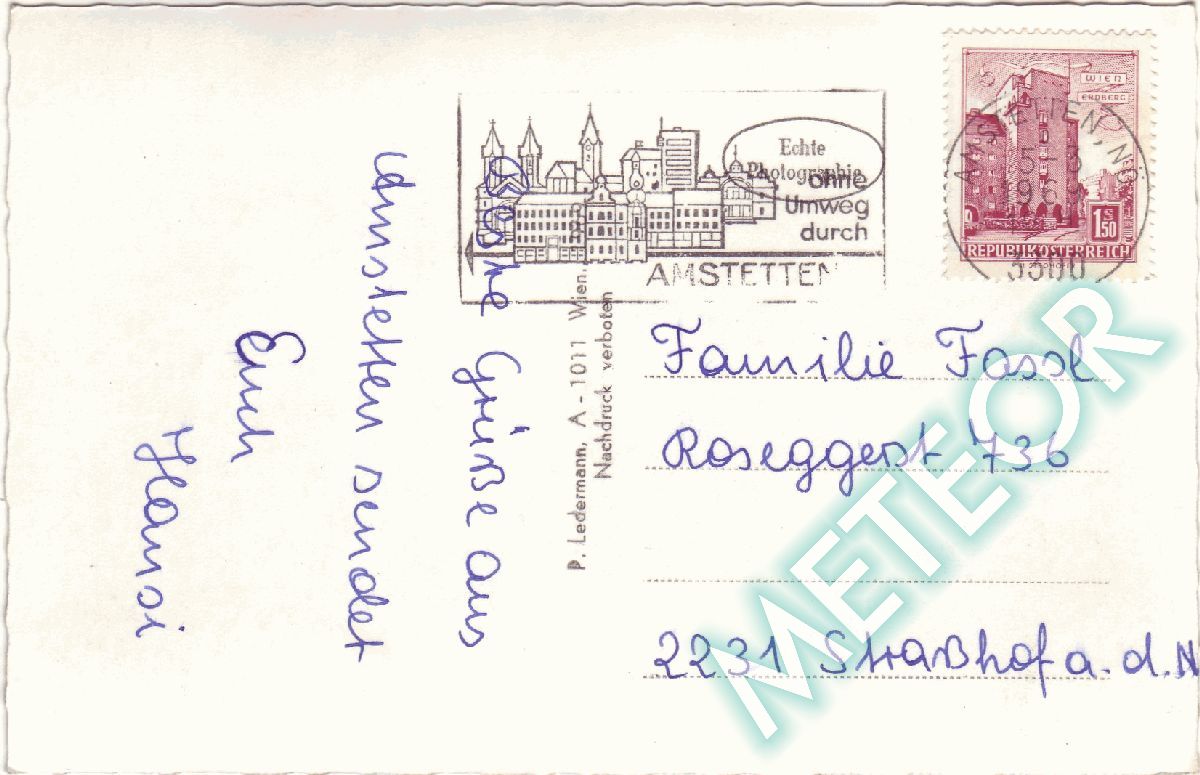 Schöne Grüße aus
Amstetten sendet
Euch
Hansi
P. Ledermann, A - 1011 Wien,
Nachdruck verboten
Echte
Photographie
ohne
Umweg
durch
AMSTETTEN
WIEN
ERDBERG
S
1.50
REPUBLIK ÖSTERREICH
AMSTETTEN, NÖ
3300
Familie Fassl
Roseggerst 736
2231 Straßhof a. d. N
METEOR